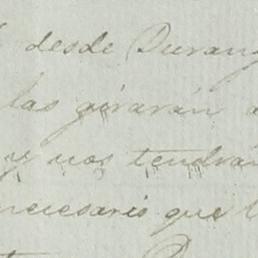 desde Durang
las girarán
y nos tendrán
necesario que